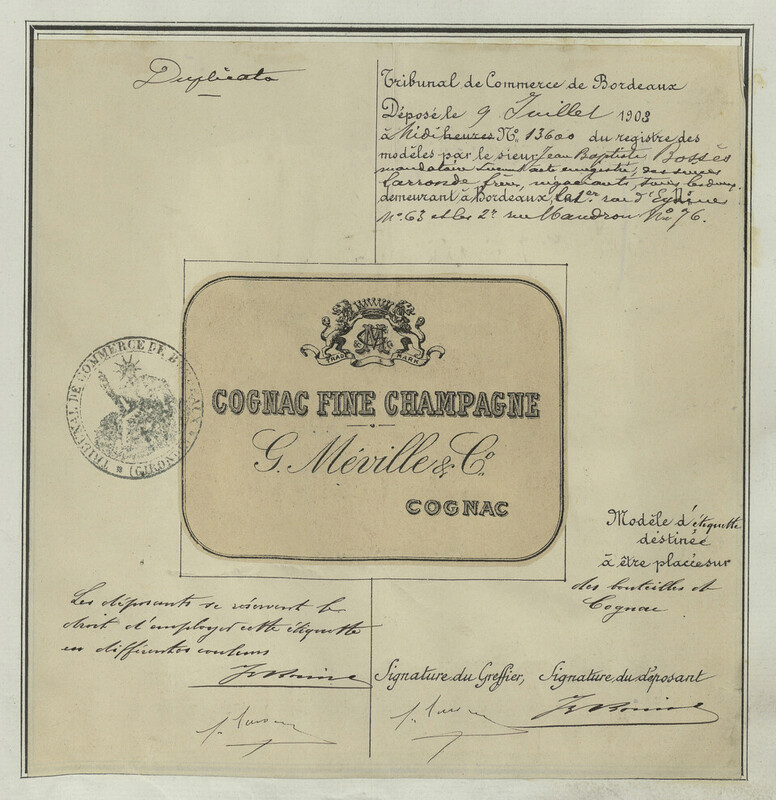 Duplicata
Tribunal de Commerce de Bordeaux
Déposé le 9 Juillet 1903
à Midi heures No. 13600 du registre des
modèles par le sieur Jean Baptiste Bossès
mandataire suivant acte enregistré, des sieurs
Larronde frères, négociants, tous les deux
demeurant à Bordeaux, le 1er rue d'
No. 63 et le 2e rue Mandron No. 76.
TRIBUNAL DE COMMERCE DE BORDEAUX
(GIRONDE)
TRADE MARK
COGNAC FINE CHAMPAGNE
G. Méville & Co.
COGNAC
Modèle d'étiquette
destinée
à être placée sur
des bouteilles de
Cognac
Les déposants se réservent le
droit d'employer cette étiquette
en différentes couleurs
Signature du Greffier, Signature du déposant